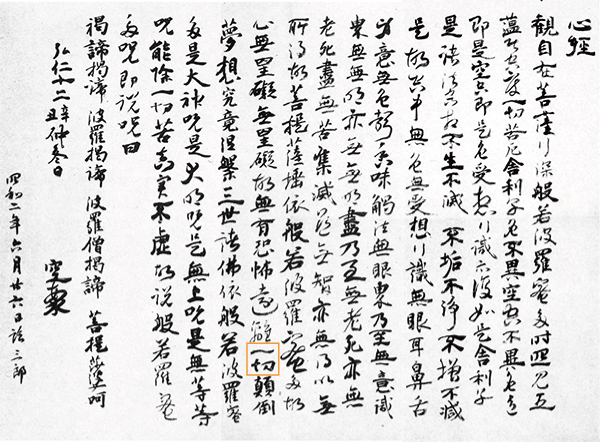 心経
観自在菩薩行深般若波羅蜜多時照見五
蘊皆空度一切苦厄舎利子色不異空空不異色色
即是空空即是色受想行識亦復如是舎利子
是諸法空相不生不滅不垢不浄不増不減
是故空中無色無受想行識無眼耳鼻舌
身意無色声香味触法無眼界乃至無意識
界無無明亦無無明盡乃至無老死亦無
老死盡無苦集滅道無智亦無得以無
所得故菩提薩埵依般若波羅蜜多故
心無罣礙無罣礙故無有恐怖遠離一切顛倒
夢想究竟涅槃三世諸佛依般若波羅蜜
多是大神呪是大明呪是無上呪是無等等
呪能除一切苦真実不虚故説般若羅蜜
多呪即説呪曰
揭諦揭諦 波羅揭諦 波羅僧揭諦 菩提薩婆呵
弘仁十二辛丑仲春日
昭和二年六月廿六日